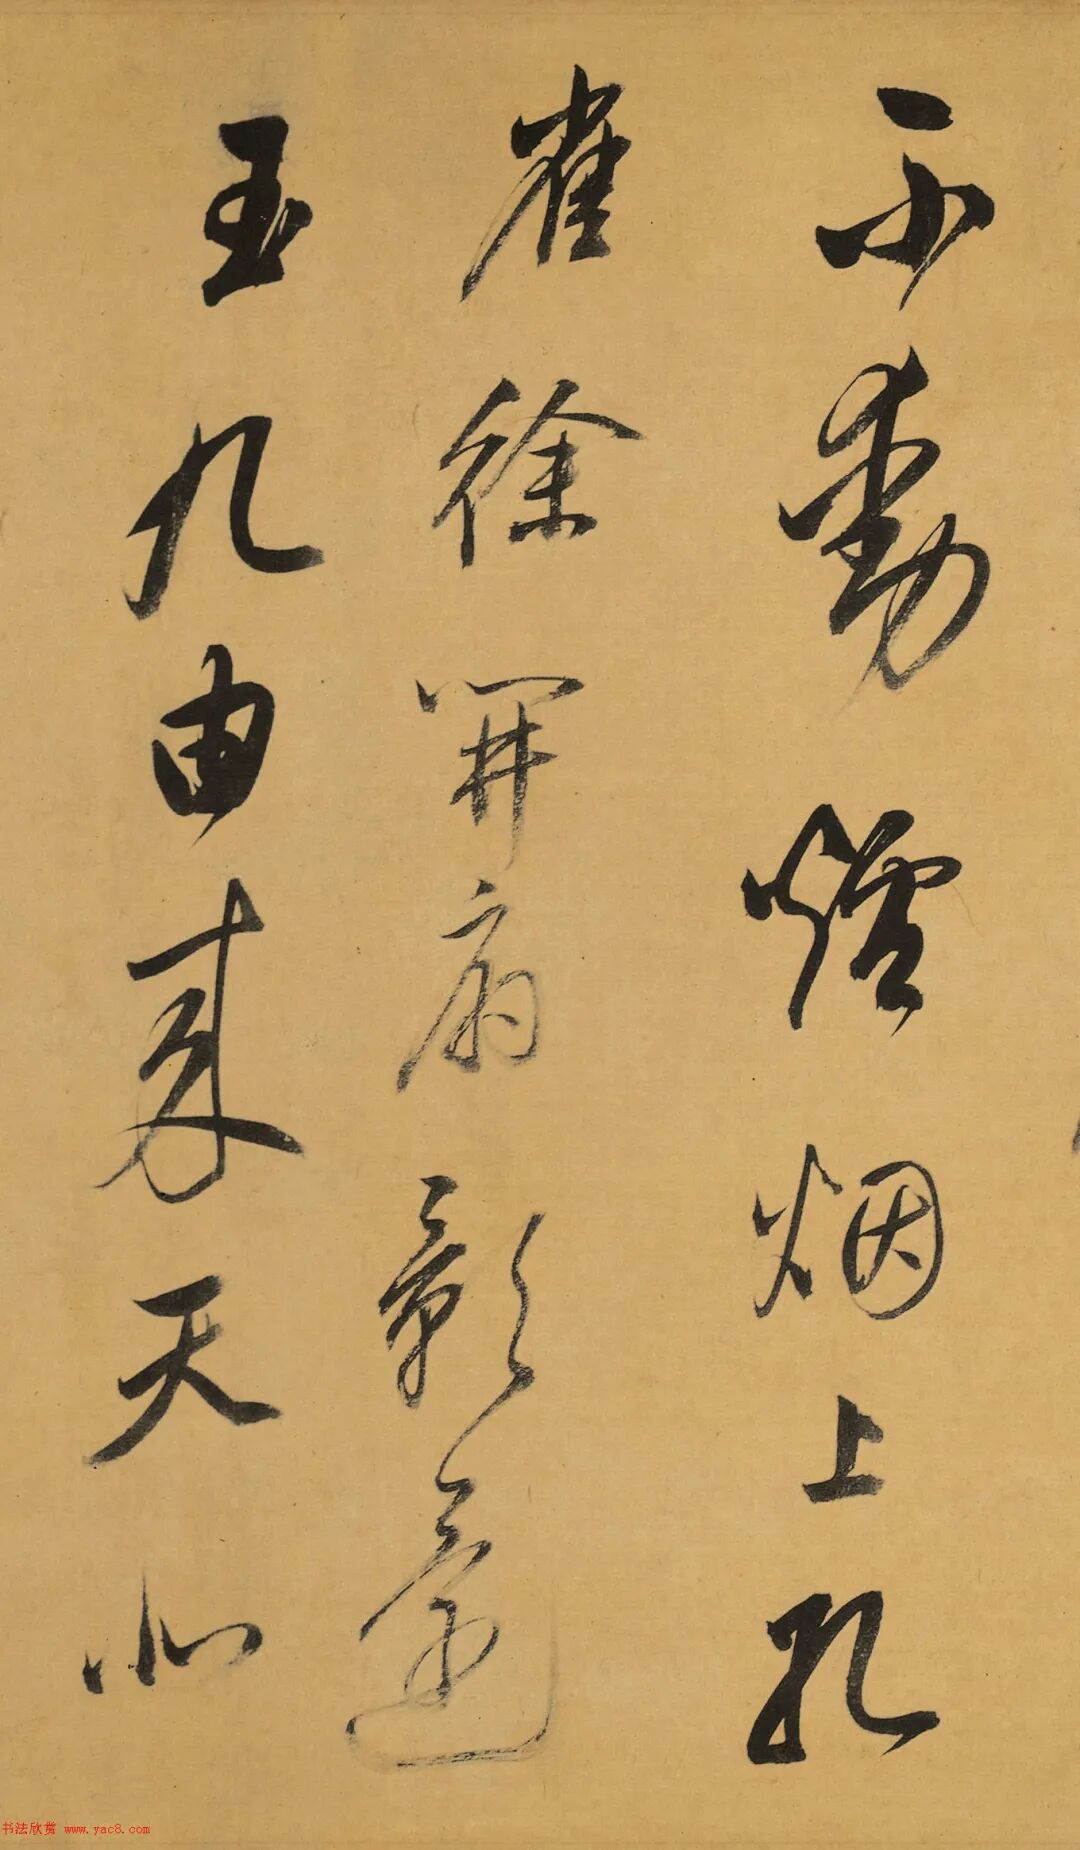 不動爐烟上孔
雀徐開扇影還
玉几由來天北
书法欣赏 www.yac8.com